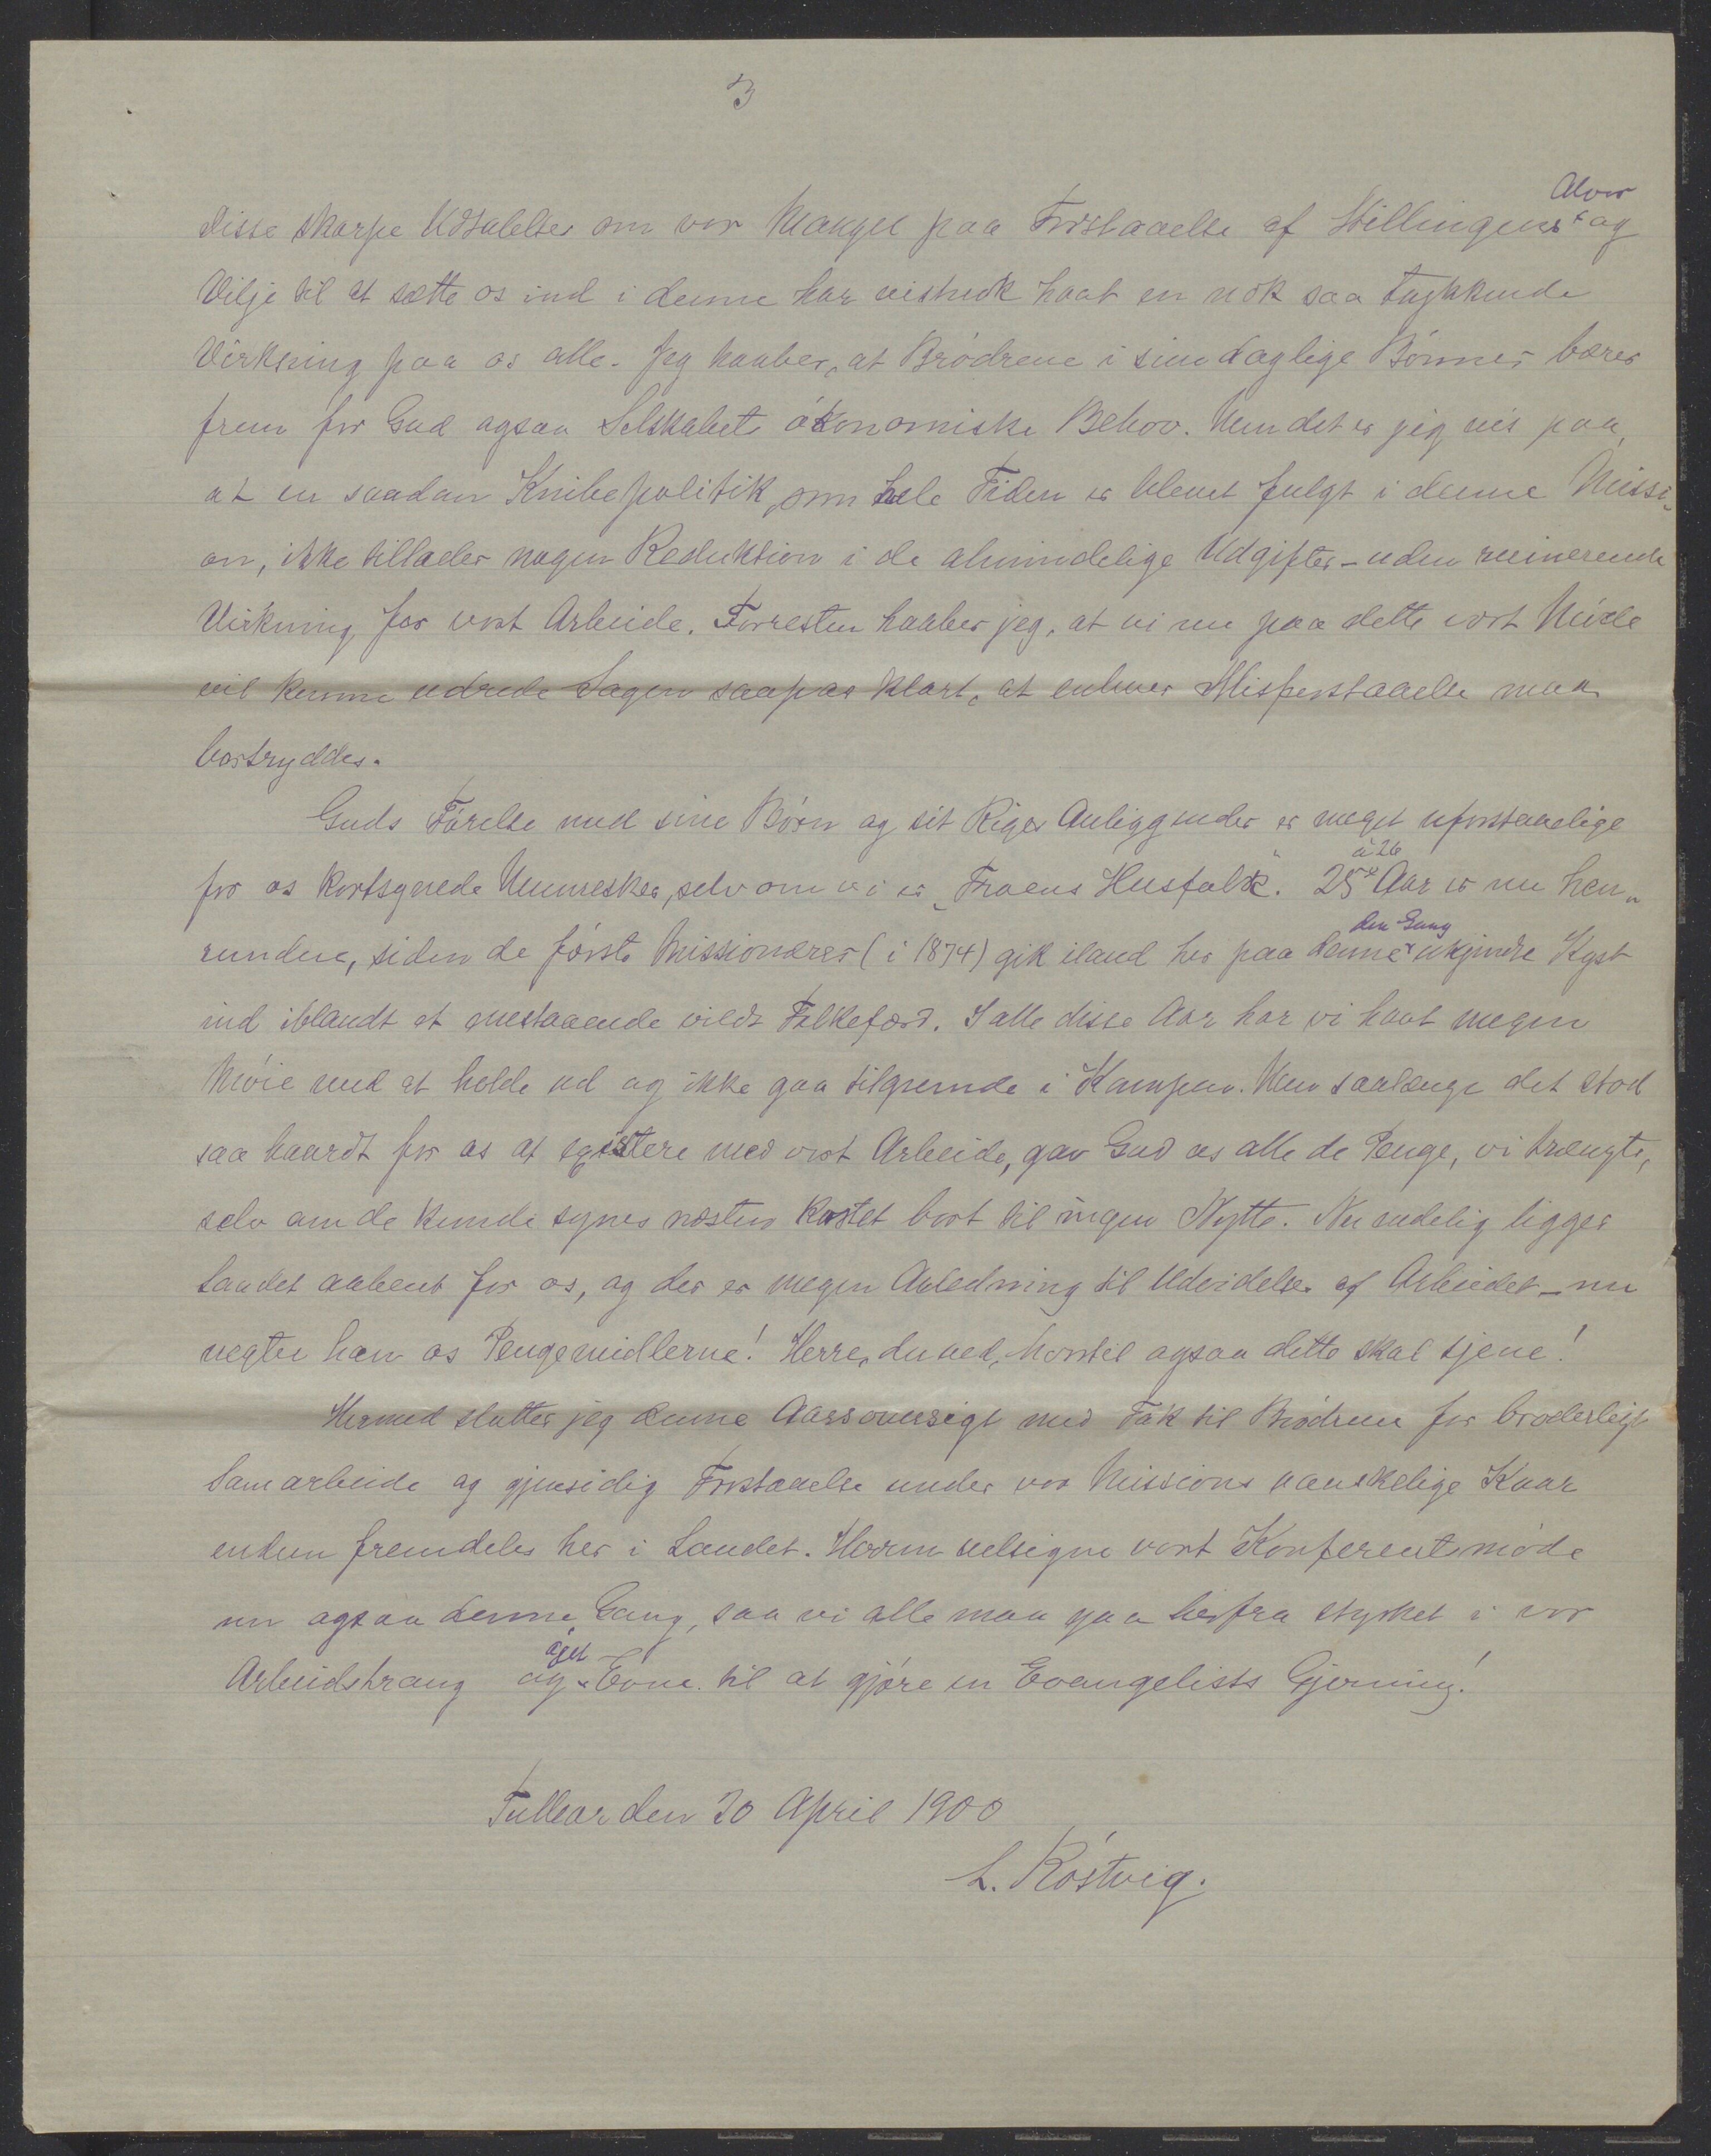 3
Disse skarpe Udtalelser om vor Mangel paa Forstaaelse af Stillingens Alvor og
Vilje til at sætte os ind i denne har vistnok havt en nok saa trykkende
Virkning paa os alle. Jeg haaber, at Brødrene i sine daglige Bønner bærer
frem for Gud ogsaa Selskabets økonomiske Behov. Men det er jeg vis paa,
at en saadan Knibepolitik, som hele Tiden er blevet fulgt i denne Missi-
on, ikke tillader nogen Reduktion i de almindelige Udgifter – uden ruinerende
Virkning for vort Arbeide. Forresten haaber jeg, at vi nu paa dette vort Møde
vil kunne udrede Sagen saapas klart, at enhver Misforstaaelse maa
bortryddes.
Guds Førelse med sine Børn og sit Riges Anliggender er meget uforstaaelige
for os kortsynede Mennesker, selv om vi er "Troens Husfolk". 25 à 26 Aar er nu hen-
rundne, siden de første Missionærer (i 1874) gik iland her paa denne den Gang ukjendte Kyst
ind iblandt et grænsende vildt Folkefærd. I alle disse Aar har vi havt megen
Møie med at holde ud og ikke gaa tilgrunde i Kampen. Men saalænge det stod
saa haardt for os at existere med vort Arbeide, gav Gud os alle de Penge, vi trængte,
selv om de kunde synes næsten kastet bort til ingen Nytte. Nu endelig ligger
Landet aabent for os, og der er megen Anledning til Udvidelse af Arbeidet – nu
negter han os Pengemidlerne! Herre, du ved, hvortil ogsaa dette skal tjene!
Hermed slutter jeg denne Aarsoversigt med Tak til Brødrene for broderligt
Samarbeide og gjensidig Forstaaelse under vor Missions vanskelige Kaar
endnu fremdeles her i Landet. Herren velsigne vort Konferentsmøde
nu ogsaa denne Gang, saa vi alle maa gaa herfra styrket i vor
Arbeidstrang og øget Evne til at gjøre en Evangelists Gjerning!
Tullear den 20 April 1900
L. Røstvig.